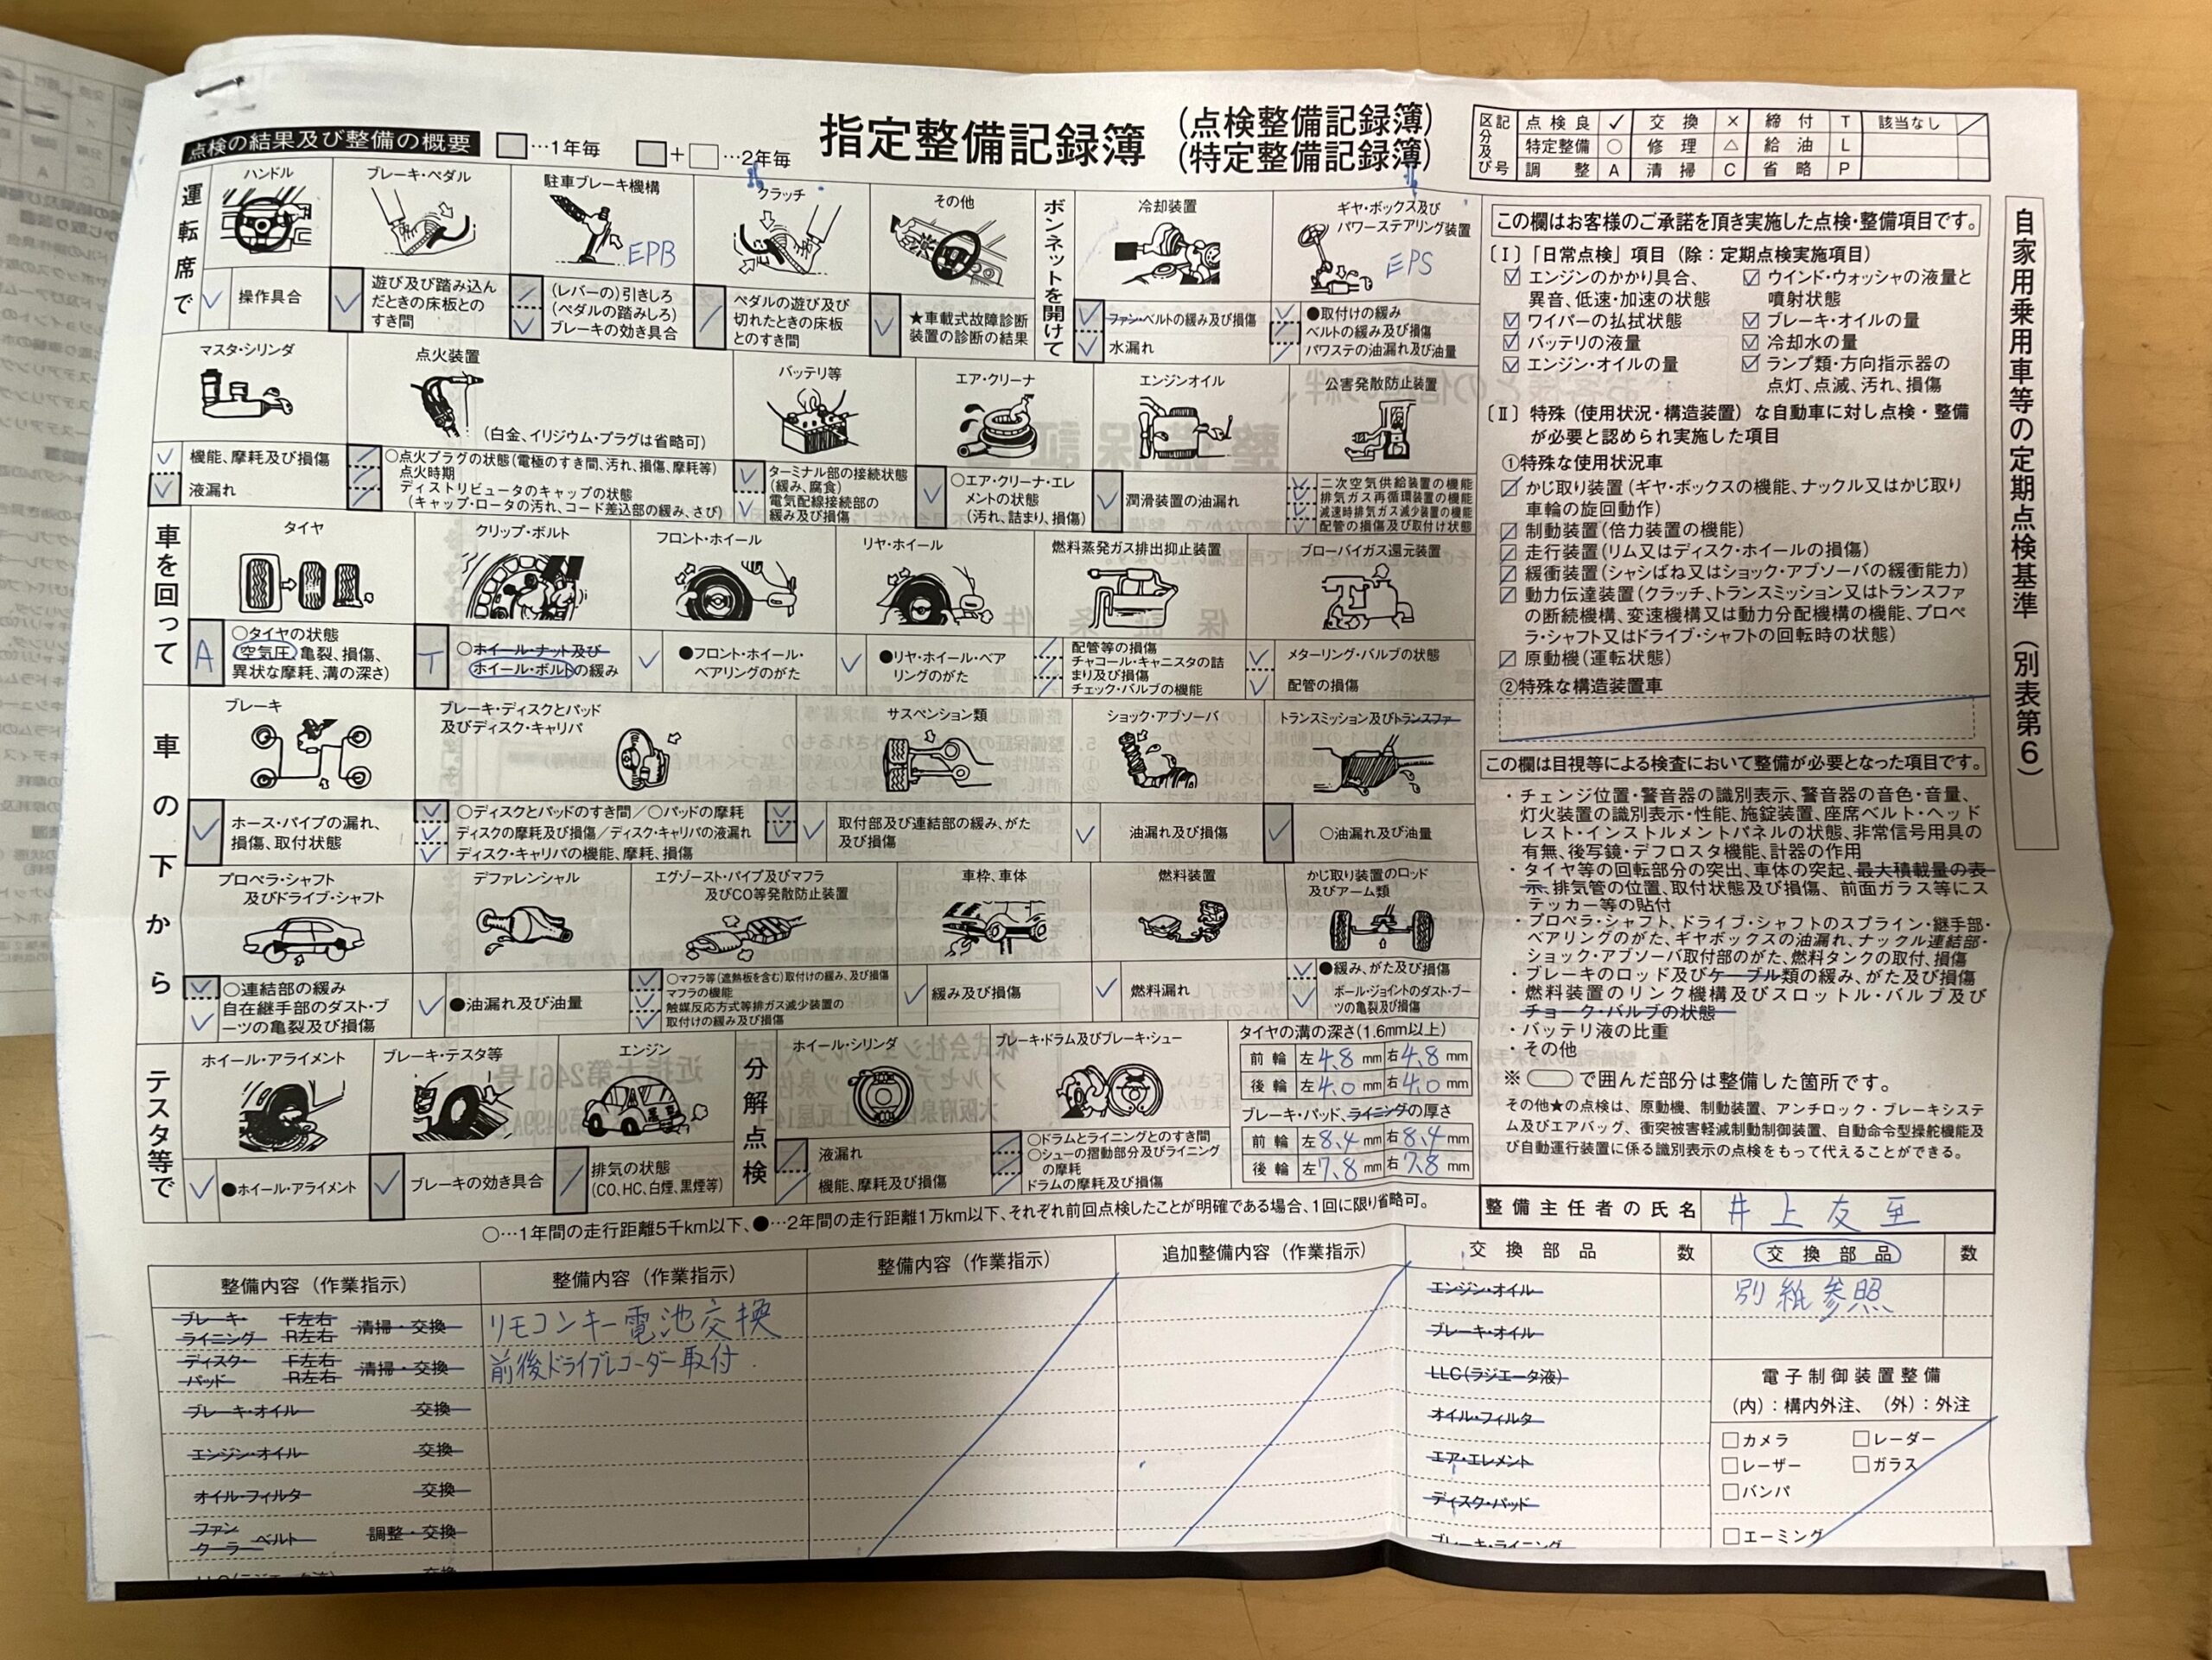 点検の結果及び整備の概要
…1年毎
+ …2年毎
指定整備記録簿
(点検整備記録簿)
(特定整備記録簿)
区分及び記号
点検良 ✓ 交換 × 締付 T 該当なし ／
特定整備 ○ 修理 △ 給油 L
調整 A 清掃 C 省略 P
運転席で
ハンドル
操作具合
ブレーキ・ペダル
遊び及び踏み込ん
だときの床板との
すき間
駐車ブレーキ機構
EPB
(レバーの)引きしろ
(ペダルの踏みしろ)
ブレーキの効き具合
クラッチ
ペダルの遊び及び
切れたときの床板
とのすき間
その他
★車載式故障診断
装置の診断の結果
ボンネットを開けて
冷却装置
ファン・ベルトの緩み及び損傷
水漏れ
ギヤ・ボックス及び
パワーステアリング装置
EPS
●取付けの緩み
ベルトの緩み及び損傷
パワステの油漏れ及び油量
マスタ・シリンダ
機能、摩耗及び損傷
液漏れ
点火装置
(白金、イリジウム・プラグは省略可)
○点火プラグの状態(電極のすき間、汚れ、損傷、摩耗等)
点火時期
ディストリビュータのキャップの状態
(キャップ・ロータの汚れ、コード差込部の緩み、さび)
バッテリ等
ターミナル部の接続状態
(緩み、腐食)
電気配線接続部の
緩み及び損傷
エア・クリーナ
○エア・クリーナ・エレ
メントの状態
(汚れ、詰まり、損傷)
エンジンオイル
潤滑装置の油漏れ
公害発散防止装置
二次空気供給装置の機能
排気ガス再循環装置の機能
減速時排気ガス減少装置の機能
配管の損傷及び取付け状態
車を回って
タイヤ
A
○タイヤの状態
空気圧 亀裂、損傷、
異状な摩耗、溝の深さ)
クリップ・ボルト
T
○ホイール・ナット及び
ホイール・ボルトの緩み
フロント・ホイール
●フロント・ホイール・
ベアリングのがた
リヤ・ホイール
●リヤ・ホイール・ベア
リングのがた
燃料蒸発ガス排出抑止装置
配管等の損傷
チャコール・キャニスタの詰
まり及び損傷
チェック・バルブの機能
ブローバイガス還元装置
メターリング・バルブの状態
配管の損傷
車の下から
ブレーキ
ホース・パイプの漏れ、
損傷、取付状態
ブレーキ・ディスクとパッド
及びディスク・キャリパ
○ディスクとパッドのすき間／○パッドの摩耗
ディスクの摩耗及び損傷／ディスク・キャリパの液漏れ
ディスク・キャリパの機能、摩耗、損傷
サスペンション類
取付部及び連結部の緩み、がた
及び損傷
ショック・アブソーバ
油漏れ及び損傷
トランスミッション及びトランスファー
○油漏れ及び油量
プロペラ・シャフト
及びドライブ・シャフト
○連結部の緩み
自在継手部のダスト・ブ
ーツの亀裂及び損傷
デファレンシャル
●油漏れ及び油量
エグゾースト・パイプ及びマフラ
及びCO等発散防止装置
○マフラ等(遮熱板を含む)取付けの緩み、及び損傷
マフラの機能
触媒反応方式等排ガス減少装置の
取付けの緩み及び損傷
車枠、車体
緩み及び損傷
燃料装置
燃料漏れ
かじ取り装置のロッド
及びアーム類
●緩み、がた及び損傷
ボール・ジョイントのダスト・ブー
ツの亀裂及び損傷
テスタ等で
ホイール・アライメント
●ホイール・アライメント
ブレーキ・テスタ等
ブレーキの効き具合
エンジン
排気の状態
(CO、HC、白煙、黒煙等)
分解点検
ホイール・シリンダ
液漏れ
機能、摩耗及び損傷
ブレーキ・ドラム及びブレーキ・シュー
○ドラムとライニングとのすき間
○シューの摺動部分及びライニング
の摩耗
ドラムの摩耗及び損傷
タイヤの溝の深さ(1.6mm以上)
前輪 左4.8mm 右4.8mm
後輪 左4.0mm 右4.0mm
ブレーキ・パッド、ライニングの厚さ
前輪 左8.4mm 右8.4mm
後輪 左7.8mm 右7.8mm
○…1年間の走行距離5千km以下、●…2年間の走行距離1万km以下、それぞれ前回点検したことが明確である場合、1回に限り省略可。
この欄はお客様のご承諾を頂き実施した点検・整備項目です。
〔Ⅰ〕「日常点検」項目(除：定期点検実施項目)
エンジンのかかり具合、
異音、低速・加速の状態
ワイパーの払拭状態
バッテリの液量
エンジン・オイルの量
ウインド・ウォッシャの液量と
噴射状態
ブレーキ・オイルの量
冷却水の量
ランプ類・方向指示器の
点灯、点滅、汚れ、損傷
〔Ⅱ〕特殊(使用状況・構造装置)な自動車に対し点検・整備
が必要と認められ実施した項目
①特殊な使用状況車
かじ取り装置(ギヤ・ボックスの機能、ナックル又はかじ取り
車輪の旋回動作)
制動装置(倍力装置の機能)
走行装置(リム又はディスク・ホイールの損傷)
緩衝装置(シャシばね又はショック・アブソーバの緩衝能力)
動力伝達装置(クラッチ、トランスミッション又はトランスファ
の断続機構、変速機構又は動力分配機構の機能、プロペ
ラ・シャフト又はドライブ・シャフトの回転時の状態)
原動機(運転状態)
②特殊な構造装置車
この欄は目視等による検査において整備が必要となった項目です。
・チェンジ位置・警音器の識別表示、警音器の音色・音量、
灯火装置の識別表示・性能、施錠装置、座席ベルト・ヘッド
レスト・インストルメントパネルの状態、非常信号用具の
有無、後写鏡・デフロスタ機能、計器の作用
・タイヤ等の回転部分の突出、車体の突起、最大積載量の表
示、排気管の位置、取付状態及び損傷、前面ガラス等にス
テッカー等の貼付
・プロペラ・シャフト、ドライブ・シャフトのスプライン・継手部・
ベアリングのがた、ギヤボックスの油漏れ、ナックル連結部・
ショック・アブソーバ取付部のがた、燃料タンクの取付、損傷
・ブレーキのロッド及びケーブル類の緩み、がた及び損傷
・燃料装置のリンク機構及びスロットル・バルブ及び
チョーク・バルブの状態
・バッテリ液の比重
・その他
※ で囲んだ部分は整備した箇所です。
その他★の点検は、原動機、制動装置、アンチロック・ブレーキシステ
ム及びエアバッグ、衝突被害軽減制動制御装置、自動命令型操舵機能及
び自動運行装置に係る識別表示の点検をもって代えることができる。
自家用乗用車等の定期点検基準(別表第6)
整備主任者の氏名 井上友至
整備内容(作業指示)
ブレーキ・ライニング F左右 R左右 清掃・交換
ディスク・パッド F左右 R左右 清掃・交換
ブレーキ・オイル 交換
エンジン・オイル 交換
オイル・フィルタ 交換
ファン クーラー ベルト 調整・交換
整備内容(作業指示)
リモコンキー電池交換
前後ドライブレコーダー取付
整備内容(作業指示)
追加整備内容(作業指示)
交換部品 数
エンジン・オイル
ブレーキ・オイル
LLC(ラジエータ液)
オイル・フィルタ
エア・エレメント
ディスク・パッド
ブレーキ・ライニング
交換部品 数
別紙参照
電子制御装置整備
(内)：構内外注、(外)：外注
カメラ レーダー
レーザー ガラス
バンパ
エーミング